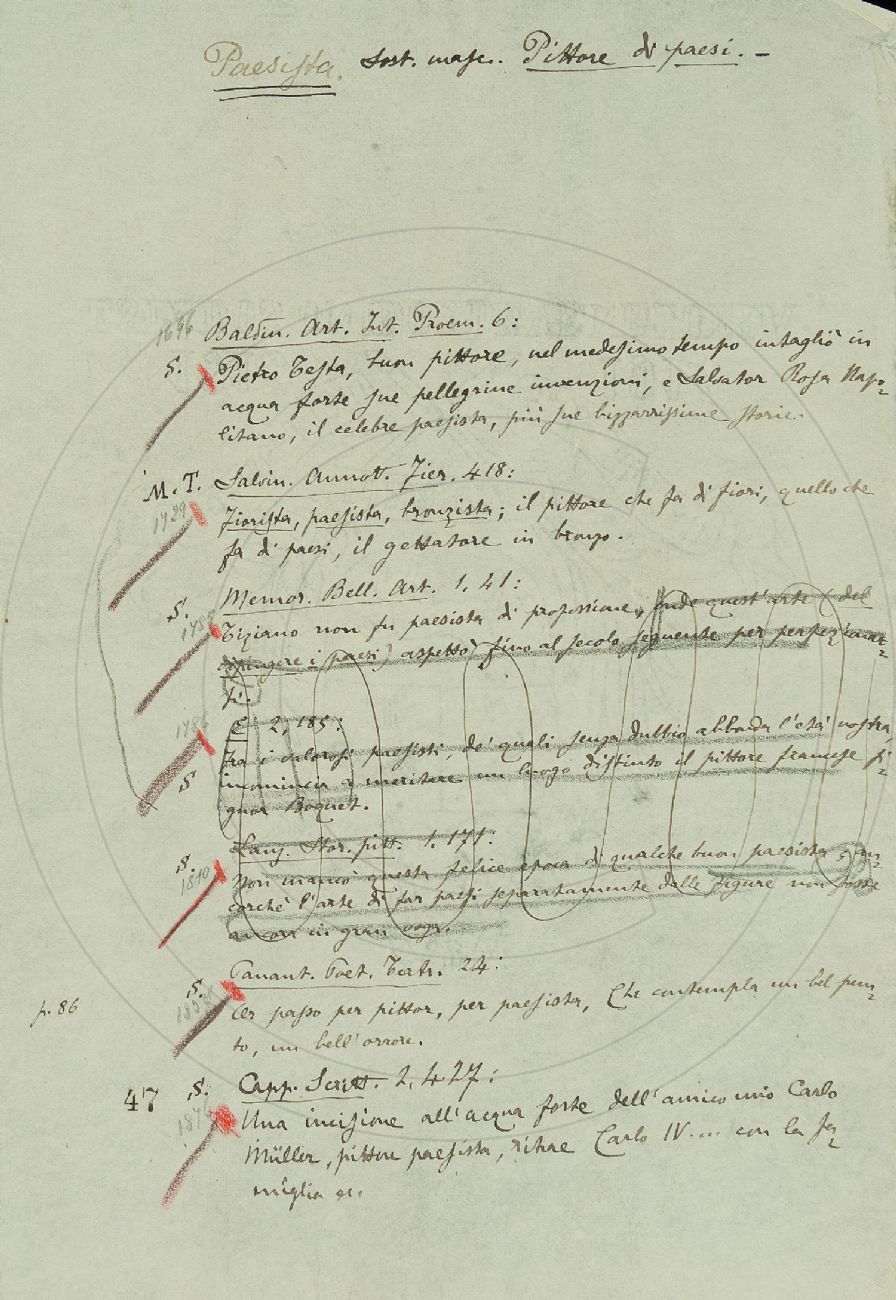 Paesista. Sost. masc. Pittore di paesi. –
1696
Baldin. Art. Int. Proem. 6:
S. Pietro Testa, buon pittore, nel medesimo tempo intagliò in
acqua forte sue pellegrine invenzioni, e Salvator Rosa Napo=
litano, il celebre paesista, più sue bizzarrissime storie.
M. T. Salvin. Annot. Fier. 418:
1729 Fiorista, paesista, bronzista; il pittore che fa di fiori, quello che
fa di paesi, il gettatore in bronzo.
S. Memor. Bell. Art. 1, 41:
Tiziano non fu paesista di professione, onde quest'arte (del
dipingere i paesi) aspettò fino al secolo seguente per perfezionar=
si.
E 2, 185:
1786 Tra i valorosi paesisti, de' quali senza dubbio abbonda l'età nostra,
S incomincia a meritare un luogo distinto il pittore francese si=
gnor Boquet.
S. Lanz. Stor. pitt. 1. 171:
1810 Non mancò questa felice epoca di qualche buon paesista, an=
corchè l'arte di far paesi separatamente dalle figure non fosse
ancora in gran voga.
S. Panant. Poet. Teatr. 24:
Ier passo per pittor, per paesista, Che contempla un bel pun=
p. 86
to, un bell'orrore.
47 S. Capp. Scritt. 2, 427:
Una incisione all'acqua forte dell'amico mio Carlo
Müller, pittore paesista, ritrae Carlo IV.... con la fa=
miglia ec.